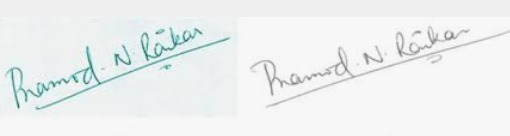 Pramod. N. Raikar Pramod. N. Raikar